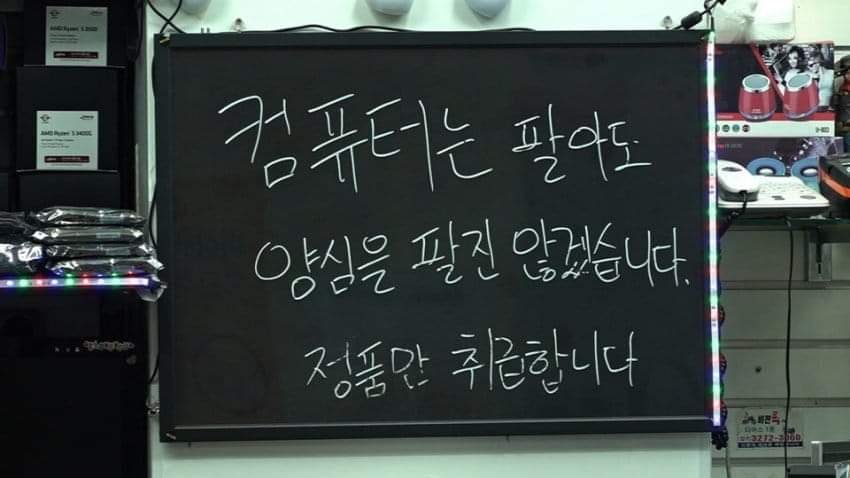 컴퓨터는 팔아도
양심을 팔진 않겠습니다.
정품만 취급합니다
AMD Ryzen
AMD Ryzen 5 3400G
3272-3060